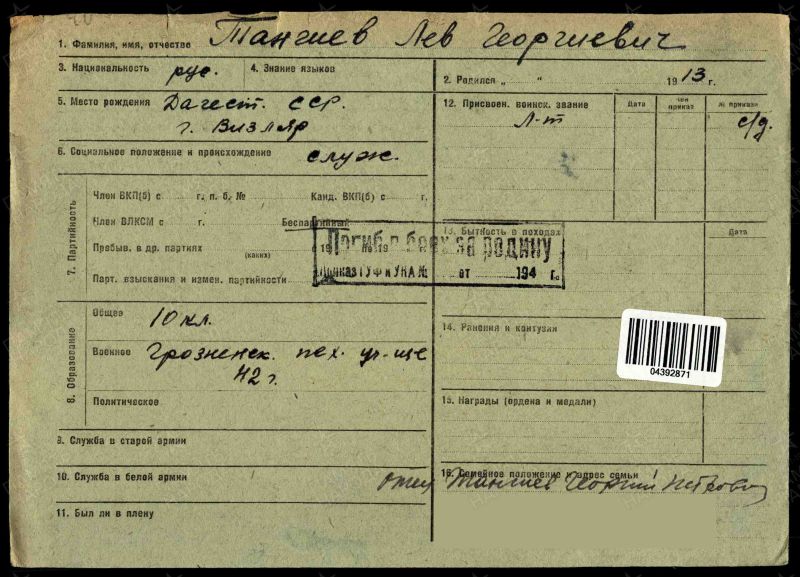 1. Фамилия, имя, отчество Тангиев Лев Георгиевич
3. Национальность рус. 4. Знание языков
2. Родился „ “ 1913 г.
5. Место рождения Дагест. ССР.
г. Визляр
12. Присвоен. воинск. звание Дата чей приказ № приказа
Л-т с/д.
6. Социальное положение и происхождение служ.
7. Партийность
Член ВКП(б) с г. п. б. № Канд. ВКП(б) с г.
Член ВЛКСМ с г. Беспартийный
Пребыв. в др. партиях (каких) с 19 по 19
Парт. взыскания и измен. партийности
13. Бытность в походах Дата
Погиб в боях за родину
Приказ ГУФ и УКА № от 194 г.
8. Образование
Общее 10 кл.
Военное Грозненск. пех. уч-ще
42 г.
Политическое
14. Ранения и контузии
04392871
15. Награды (ордена и медали)
9. Служба в старой армии
10. Служба в белой армии
16. Семейное положение и адрес семьи
отец Тангиев Георгий Петрович
11. Был ли в плену